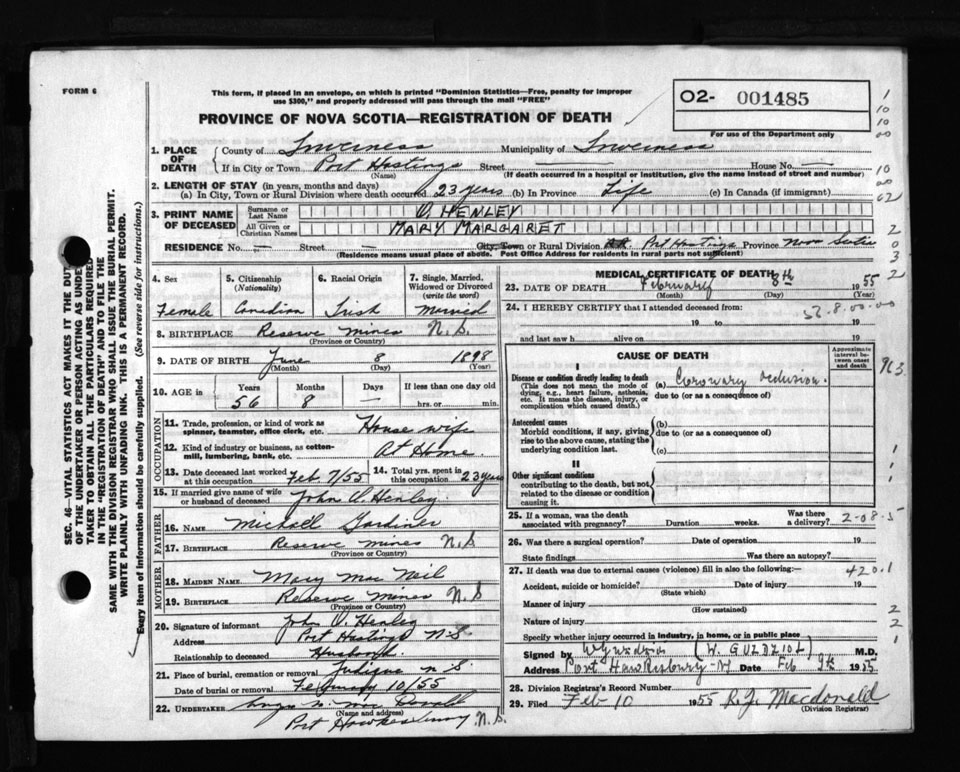 FORM 6
This form, if placed in an envelope, on which is printed "Dominion Statistics—Free, penalty for improper
use $300," and properly addressed will pass through the mail "FREE"
O2- 001485
For use of the Department only
PROVINCE OF NOVA SCOTIA—REGISTRATION OF DEATH
1. PLACE OF DEATH
County of Inverness Municipality of Inverness
If in City or Town Port Hastings Street House No.
(Name) (If death occurred in a hospital or institution, give the name instead of street and number)
2. LENGTH OF STAY (in years, months and days)
(a) In City, Town or Rural Division where death occurred 23 years (b) In Province Life (c) In Canada (if immigrant)
3. PRINT NAME OF DECEASED
Surname or Last Name O. HENLEY
All Given or Christian Names MARY MARGARET
RESIDENCE No. — Street — City, Town or Rural Division Port Hastings Province Nova Scotia
(Residence means usual place of abode. Post Office Address for residents in rural parts not sufficient)
4. Sex Female
5. Citizenship (Nationality) Canadian
6. Racial Origin Irish
7. Single, Married, Widowed or Divorced (write the word) Married
8. BIRTHPLACE Reserve Mines N.S.
(Province or Country)
9. DATE OF BIRTH June 8 1898
(Month) (Day) (Year)
10. AGE in Years 56 Months 8 Days — If less than one day old hrs. or min.
OCCUPATION
11. Trade, profession, or kind of work as spinner, teamster, office clerk, etc. House wife
12. Kind of industry or business, as cotton-mill, lumbering, bank, etc. At Home.
13. Date deceased last worked at this occupation Feb 7/55
14. Total yrs. spent in this occupation 23 years
15. If married give name of wife or husband of deceased John O. Henley
FATHER
16. NAME Michael Gardiner
17. BIRTHPLACE Reserve Mines N.S
(Province or Country)
MOTHER
18. MAIDEN NAME Mary Mac Neil
19. BIRTHPLACE Reserve Mines N.S
(Province or Country)
20. Signature of informant John O. Henley
Address Port Hastings N.S
Relationship to deceased Husband
21. Place of burial, cremation or removal Judique N.S
Date of burial or removal February 10/55
22. UNDERTAKER
(Name and address)
Port Hawkesbury N.S.
MEDICAL CERTIFICATE OF DEATH
23. DATE OF DEATH February 8th 1955
(Month) (Day) (Year)
24. I HEREBY CERTIFY that I attended deceased from:
19 to 19
and last saw h alive on 19
CAUSE OF DEATH
Approximate interval between onset and death
I
Disease or condition directly leading to death (a) Coronary occlusion.
(This does not mean the mode of dying, e.g., heart failure, asthenia, etc. It means the disease, injury, or complication which caused death.)
due to (or as a consequence of)
Antecedent causes
Morbid conditions, if any, giving rise to the above cause, stating the underlying condition last.
(b)
due to (or as a consequence of)
(c)
II
Other significant conditions
contributing to the death, but not related to the disease or condition causing it.
25. If a woman, was the death associated with pregnancy? Duration weeks. Was there a delivery?
26. Was there a surgical operation? Date of operation 19
State findings Was there an autopsy?
27. If death was due to external causes (violence) fill in also the following:—
420.1
Accident, suicide or homicide? Date of injury 19
(State which)
Manner of injury
(How sustained)
Nature of injury
Specify whether injury occurred in industry, in home, or in public place
Signed by (W. GUZDZIOL) M.D.
Address Port Hawkesbury Date Feb 9th 1955
28. Division Registrar's Record Number
29. Filed Feb 10 1955 R.J. Macdonald
(Division Registrar)
SEC. 46—VITAL STATISTICS ACT MAKES IT THE DUTY
OF THE UNDERTAKER OR PERSON ACTING AS UNDER
TAKER TO OBTAIN ALL THE PARTICULARS REQUIRED
IN THE "REGISTRATION OF DEATH" AND TO FILE THE
SAME WITH THE DIVISION REGISTRAR WHO SHALL ISSUE THE BURIAL PERMIT.
WRITE PLAINLY WITH UNFADING INK. THIS IS A PERMANENT RECORD.
Every item of information should be carefully supplied. (See reverse side for instructions.)